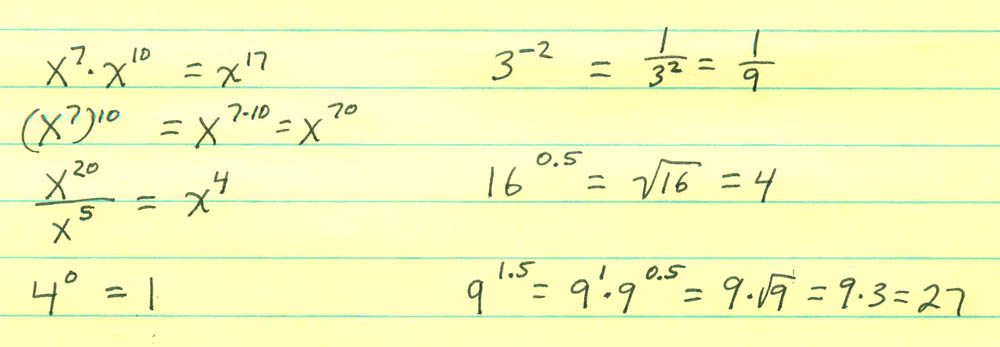 x⁷·x¹⁰ = x¹⁷
(x⁷)¹⁰ = x⁷·¹⁰ = x⁷⁰
x²⁰/x⁵ = x⁴
4⁰ = 1
3⁻² = 1/3² = 1/9
16^0.5 = √16 = 4
9^1.5 = 9¹·9^0.5 = 9·√9 = 9·3 = 27